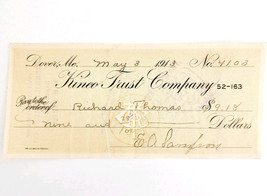 Dover, Me. May 3 1913 No. 4103
Kineo Trust Company 52-163
Pay to the order of Richard Thomas $9.18
nine and Dollars